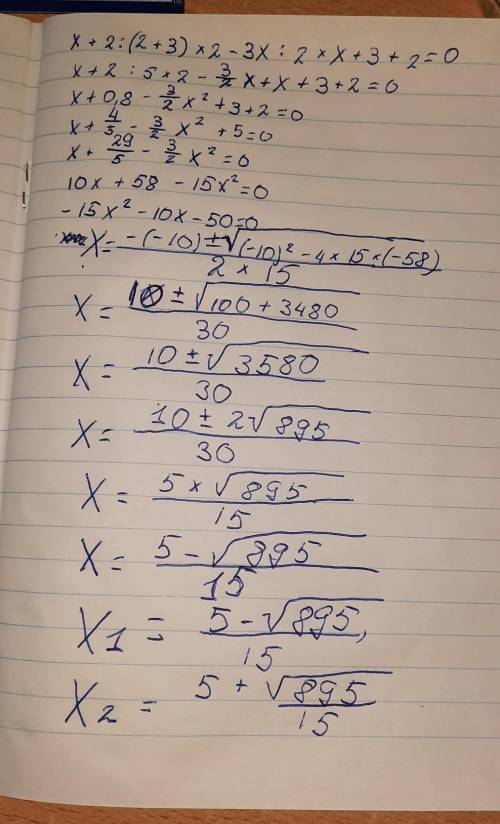 x + 2 : (2 + 3) × 2 - 3x : 2 × x + 3 + 2 = 0
x + 2 : 5 × 2 - 3/2 x + x + 3 + 2 = 0
x + 0,8 - 3/2 x² + 3 + 2 = 0
x + 4/5 - 3/2 x² + 5 = 0
x + 29/5 - 3/2 x² = 0
10x + 58 - 15x² = 0
-15x² - 10x - 50 = 0
x = -(-10) ± √(-10)² - 4 × 15 × (-58) / 2 × 15
x = 10 ± √100 + 3480 / 30
x = 10 ± √3580 / 30
x = 10 ± 2√895 / 30
x = 5 × √895 / 15
x = 5 - √895 / 15
x1 = 5 - √895 / 15,
x2 = 5 + √895 / 15